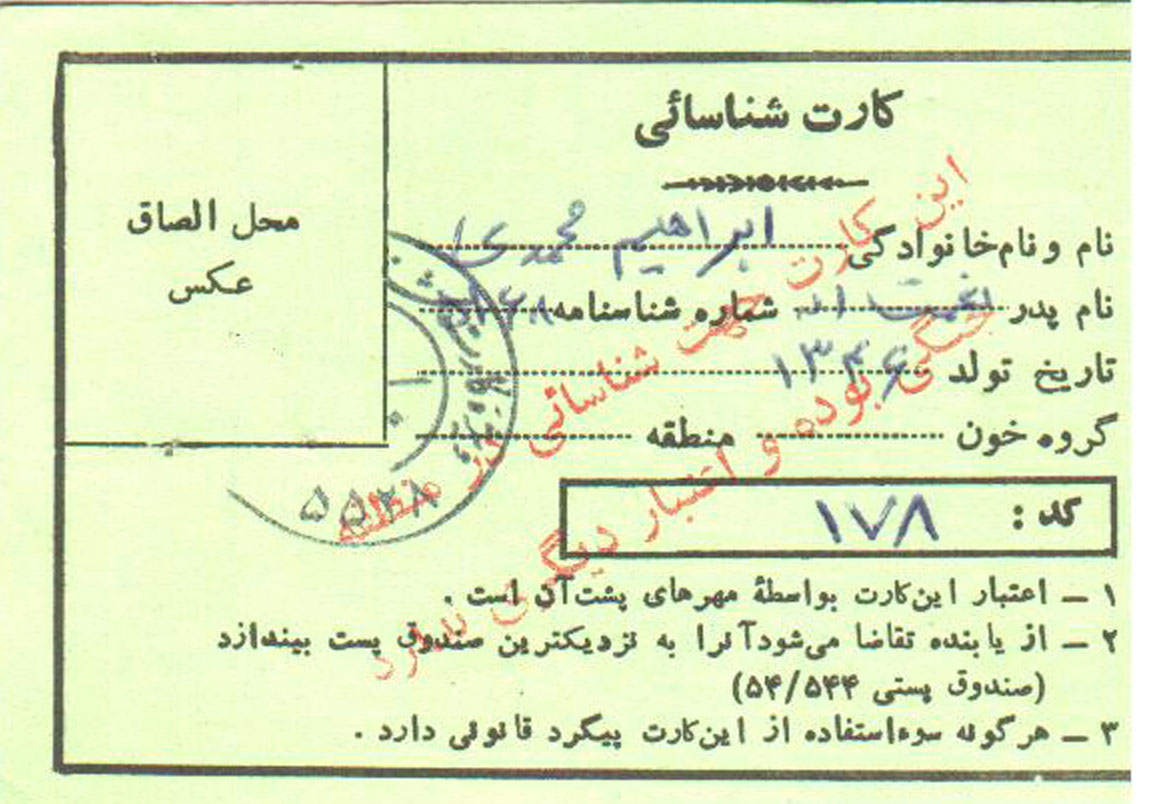 کارت شناسائی
محل الصاق
عکس
نام و نام‌خانوادگی ابراهیم محمدی
نام پدر نعمت اله شماره شناسنامه
تاریخ تولد ۱۳۴۶
گروه خون منطقه
کد : ۱۷۸
۱ ـ اعتبار این‌کارت بواسطهٔ مهرهای پشت‌آن است .
۲ ـ از یابنده تقاضا می‌شود آنرا به نزدیکترین صندوق پست بیندازد
(صندوق پستی ۵۴/۵۴۴)
۳ ـ هرگونه سوءاستفاده از این‌کارت پیگرد قانونی دارد .
این کارت جهت شناسائی در منطقه
جنگی بوده و اعتبار دیگری ندارد
۵۵۲۸